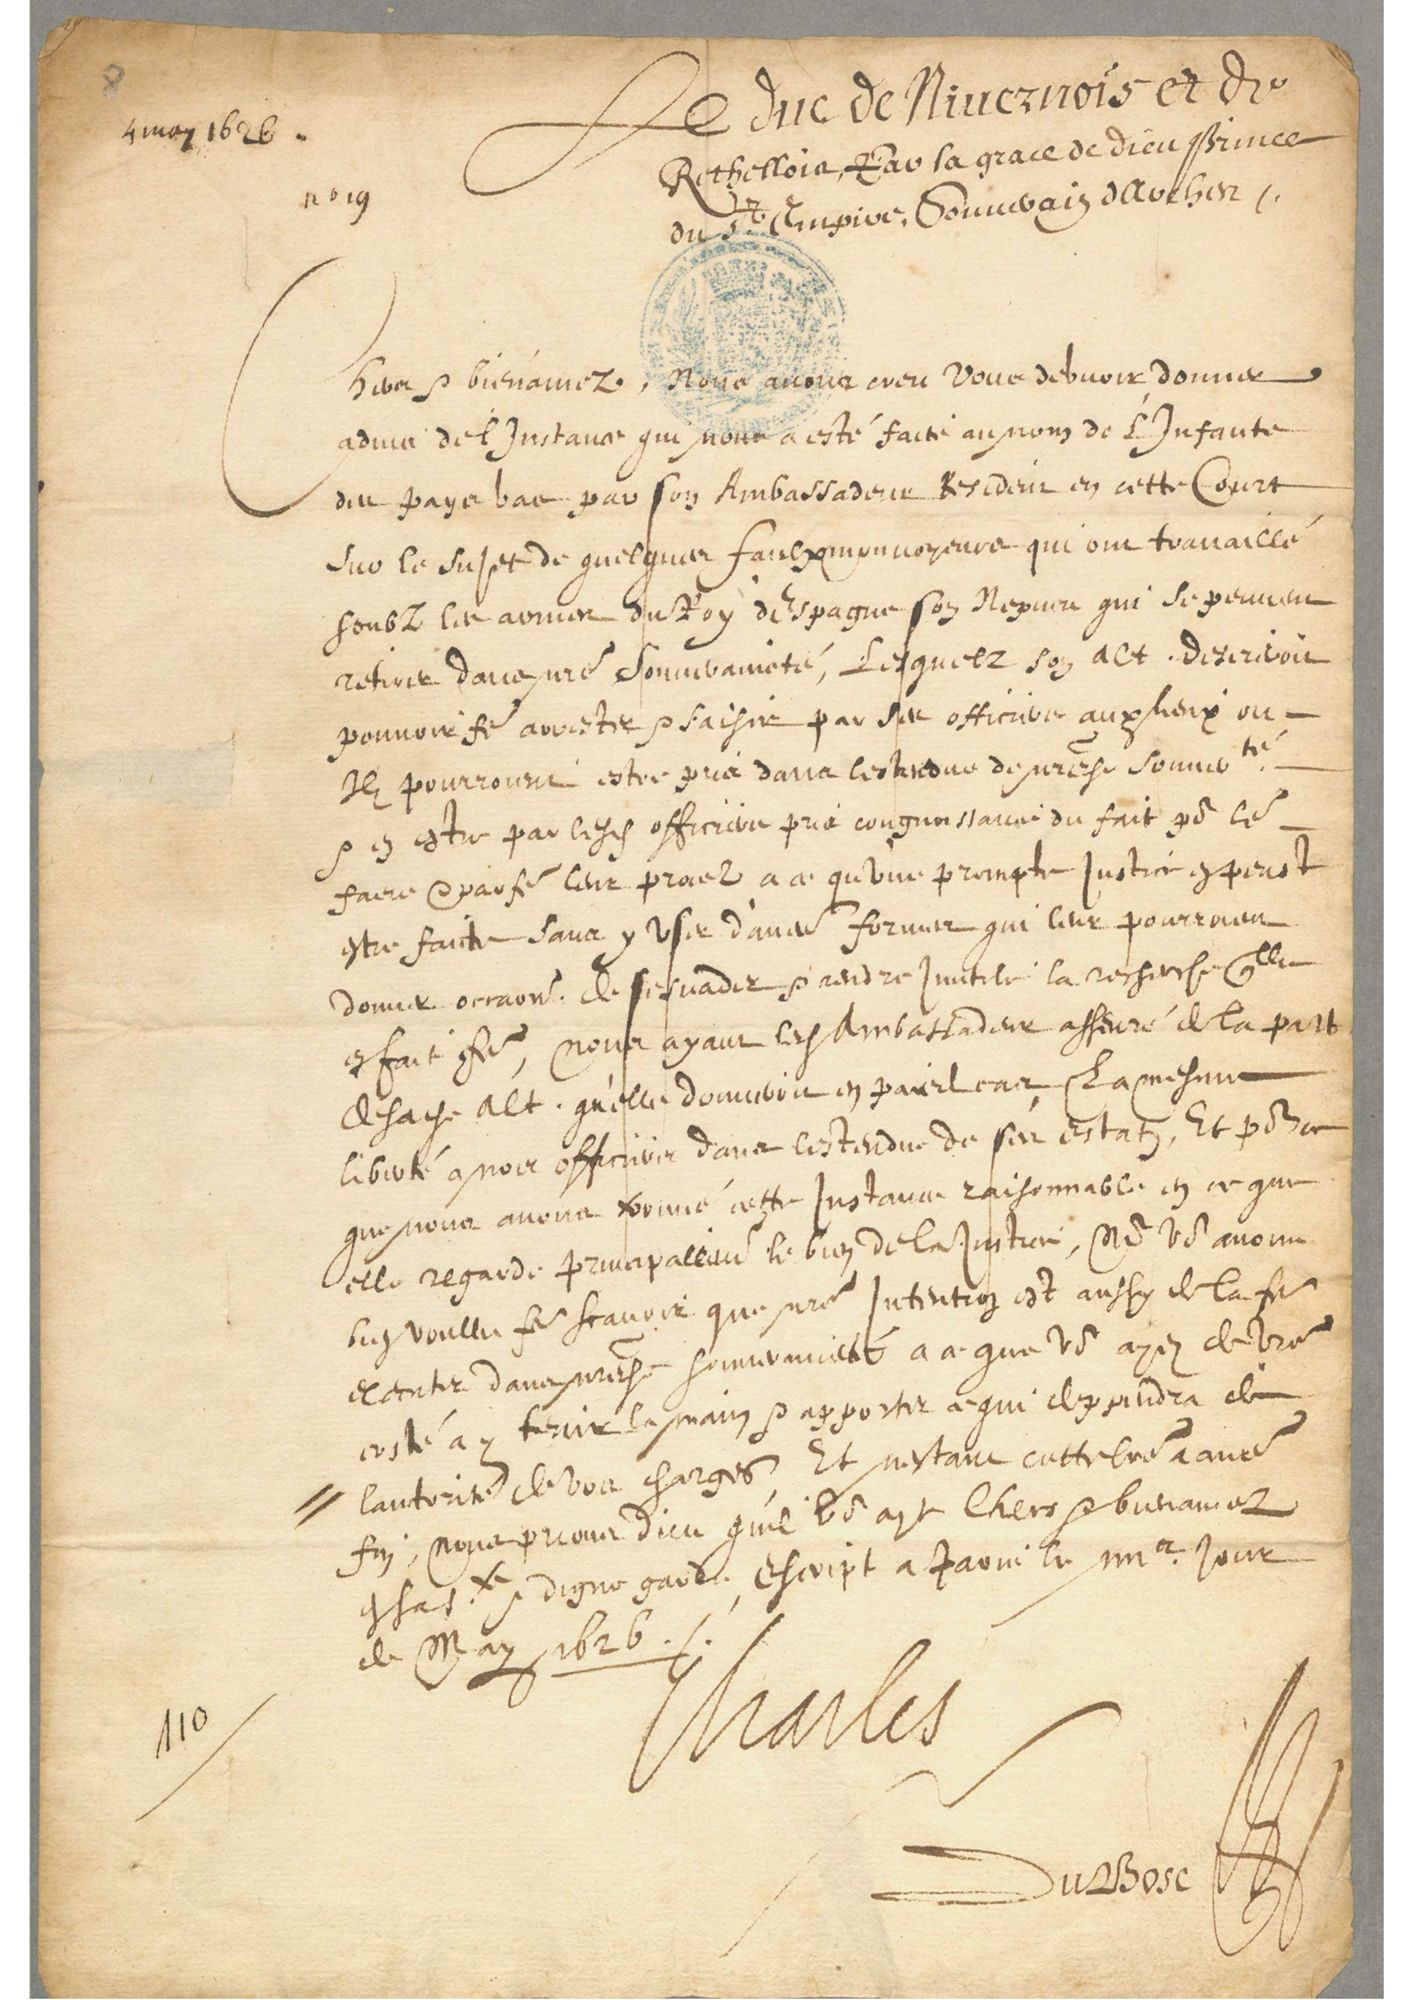 8
4 may 1626
no 19
Le duc de Nivernois et de
Rethellois, Par la grace de dieu Prince
du St. Empire, Souuerain d'Arches
Chers & bienamez, Nous auons creu vous debuoir donner
aduis de l'Instance qui nous a esté faite au nom de L'Infante
des pays bas par son Ambassadeur Resident en cette Court
sur le sujet de quelques faulx monnoyeurs qui ont trauaillé
soubz les armes du Roy d'Espagne son Nepueu qui se peuuent
retirer dans nre Souueraineté, Lesquelz son Alt. desireroit
pouuoir fe arrester & saisir par ses officiers aux lieux ou
Ilz pourront estre pris dans lestendue de nredicte Souuerté
& en estre par lesd officiers pris congnoissance du fait pr le
faere & parfe leur procez a ce qu'une prompte Justice en peust
estre faicte sans y user d'autre formes qui leur pourroient
donner occaon de s'esuader & rendre Inutile la recherche qlle
en fait fe, Nous ayant led Ambassadeur asseuré de la part
de sade Alt. qu'elle donneroit en pareil cas, La mesme
liberté a noz officiers dans lestendue de ses estatz, Et pour ce
que nous auons trouué cette Instance raisonnable en ce que
elle regarde principallemt le bien de la Justice, Ns vs auons
bien voullu fe scauoir que nre Intention est aussy de la fe
executer dans nredicte souueraineté a ce que vs ayez de vre
costé a y tenir la main & apporter ce qui deppendra de
lautorité de voz charges, Et nestant cette lre a autre
fin, Nous prions dieu qu'il vs ayt Chers & bienamez
en sa ste & digne garde, Escript a Paris le iiiie. Jour
de May 1626 ./.
Charles
110
Du Bosc